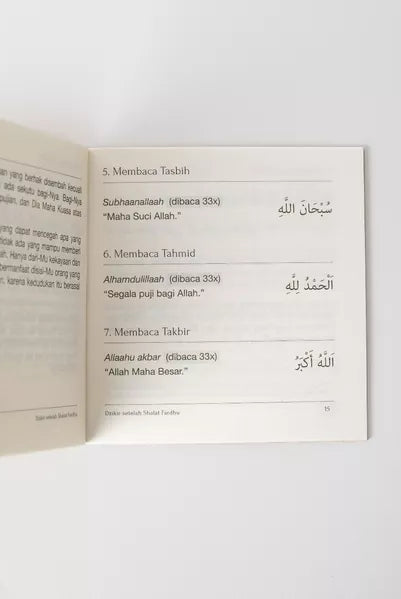 an yang berhak disembah kecuali
ada sekutu bagi-Nya. Bagi-Nya
pujian, dan Dia Maha Kuasa atas
yang dapat mencegah apa yang
tidak ada yang mampu memberi
ah. Hanya dari-Mu kekayaan dan
bermanfaat disisi-Mu orang yang
n, karena kedudukan itu berasal
Dzikir setelah Shalat Fardhu
5. Membaca Tasbih
Subhaanallaah (dibaca 33x) سُبْحَانَ اللَّهِ
“Maha Suci Allah.”
6. Membaca Tahmid
Alhamdulillaah (dibaca 33x) اَلْحَمْدُ لِلَّهِ
“Segala puji bagi Allah.”
7. Membaca Takbir
Allaahu akbar (dibaca 33x) اَللَّهُ أَكْبَرُ
“Allah Maha Besar.”
Dzikir setelah Shalat Fardhu 15